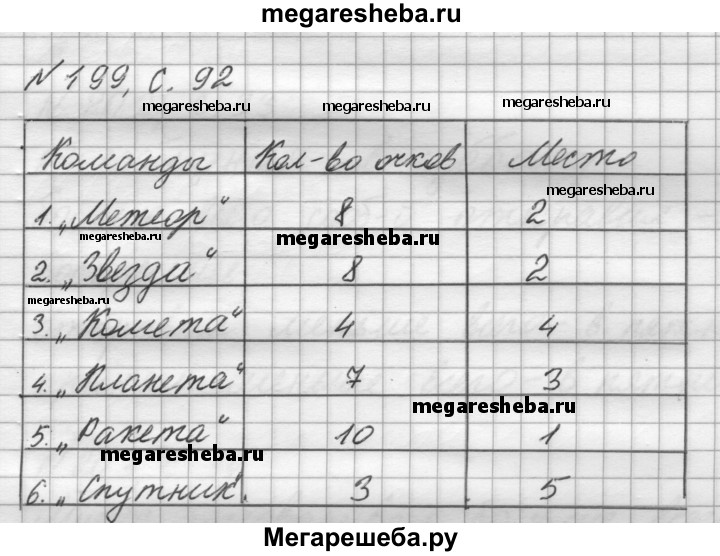 megaresheba.ru
№ 199, с. 92
megaresheba.ru megaresheba.ru megaresheba.ru
Команды Кол-во очков Место
megaresheba.ru
1. „Метеор“ 8 2
megaresheba.ru megaresheba.ru
2. „Звезда“ 8 2
megaresheba.ru
3. „Комета“ 4 4
4. „Планета“ 7 3
megaresheba.ru
5. „Ракета“ 10 1
megaresheba.ru
6. „Спутник“. 3 5
Мегарешеба.ру